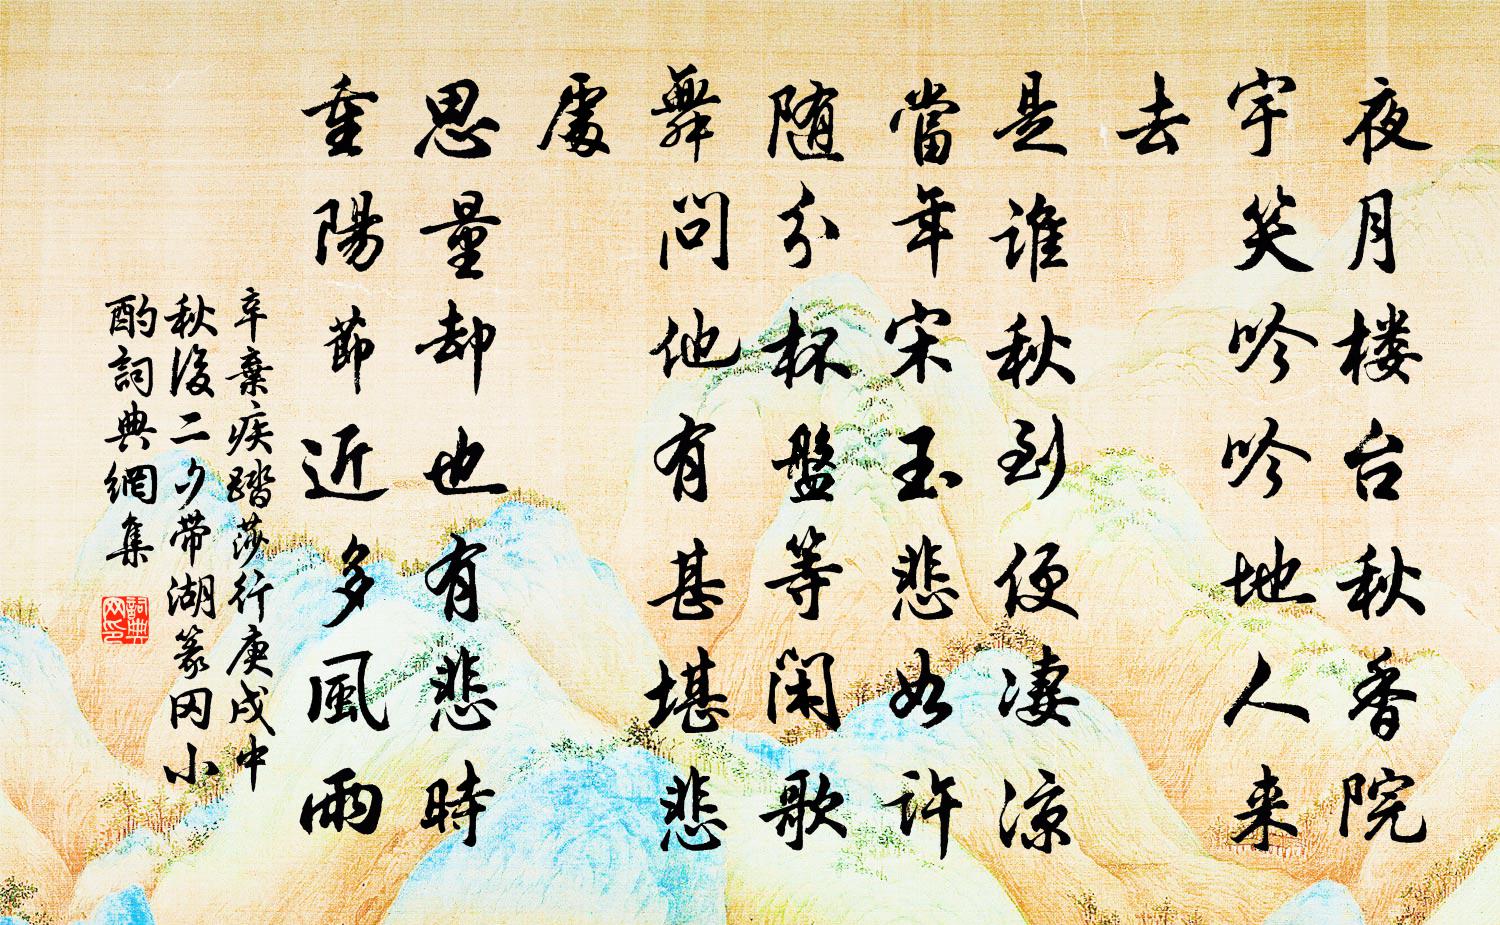 夜月楼台秋香院
宇笑吟吟地人来
去
是谁秋到便凄凉
當年宋玉悲如许
随分杯盤等闲歌
舞问他有甚堪悲
處
思量却也有悲時
重陽節近多風雨
辛棄疾踏莎行庚戌中
秋後二夕带湖篆冈小
酌詞典網集
詞典
网印